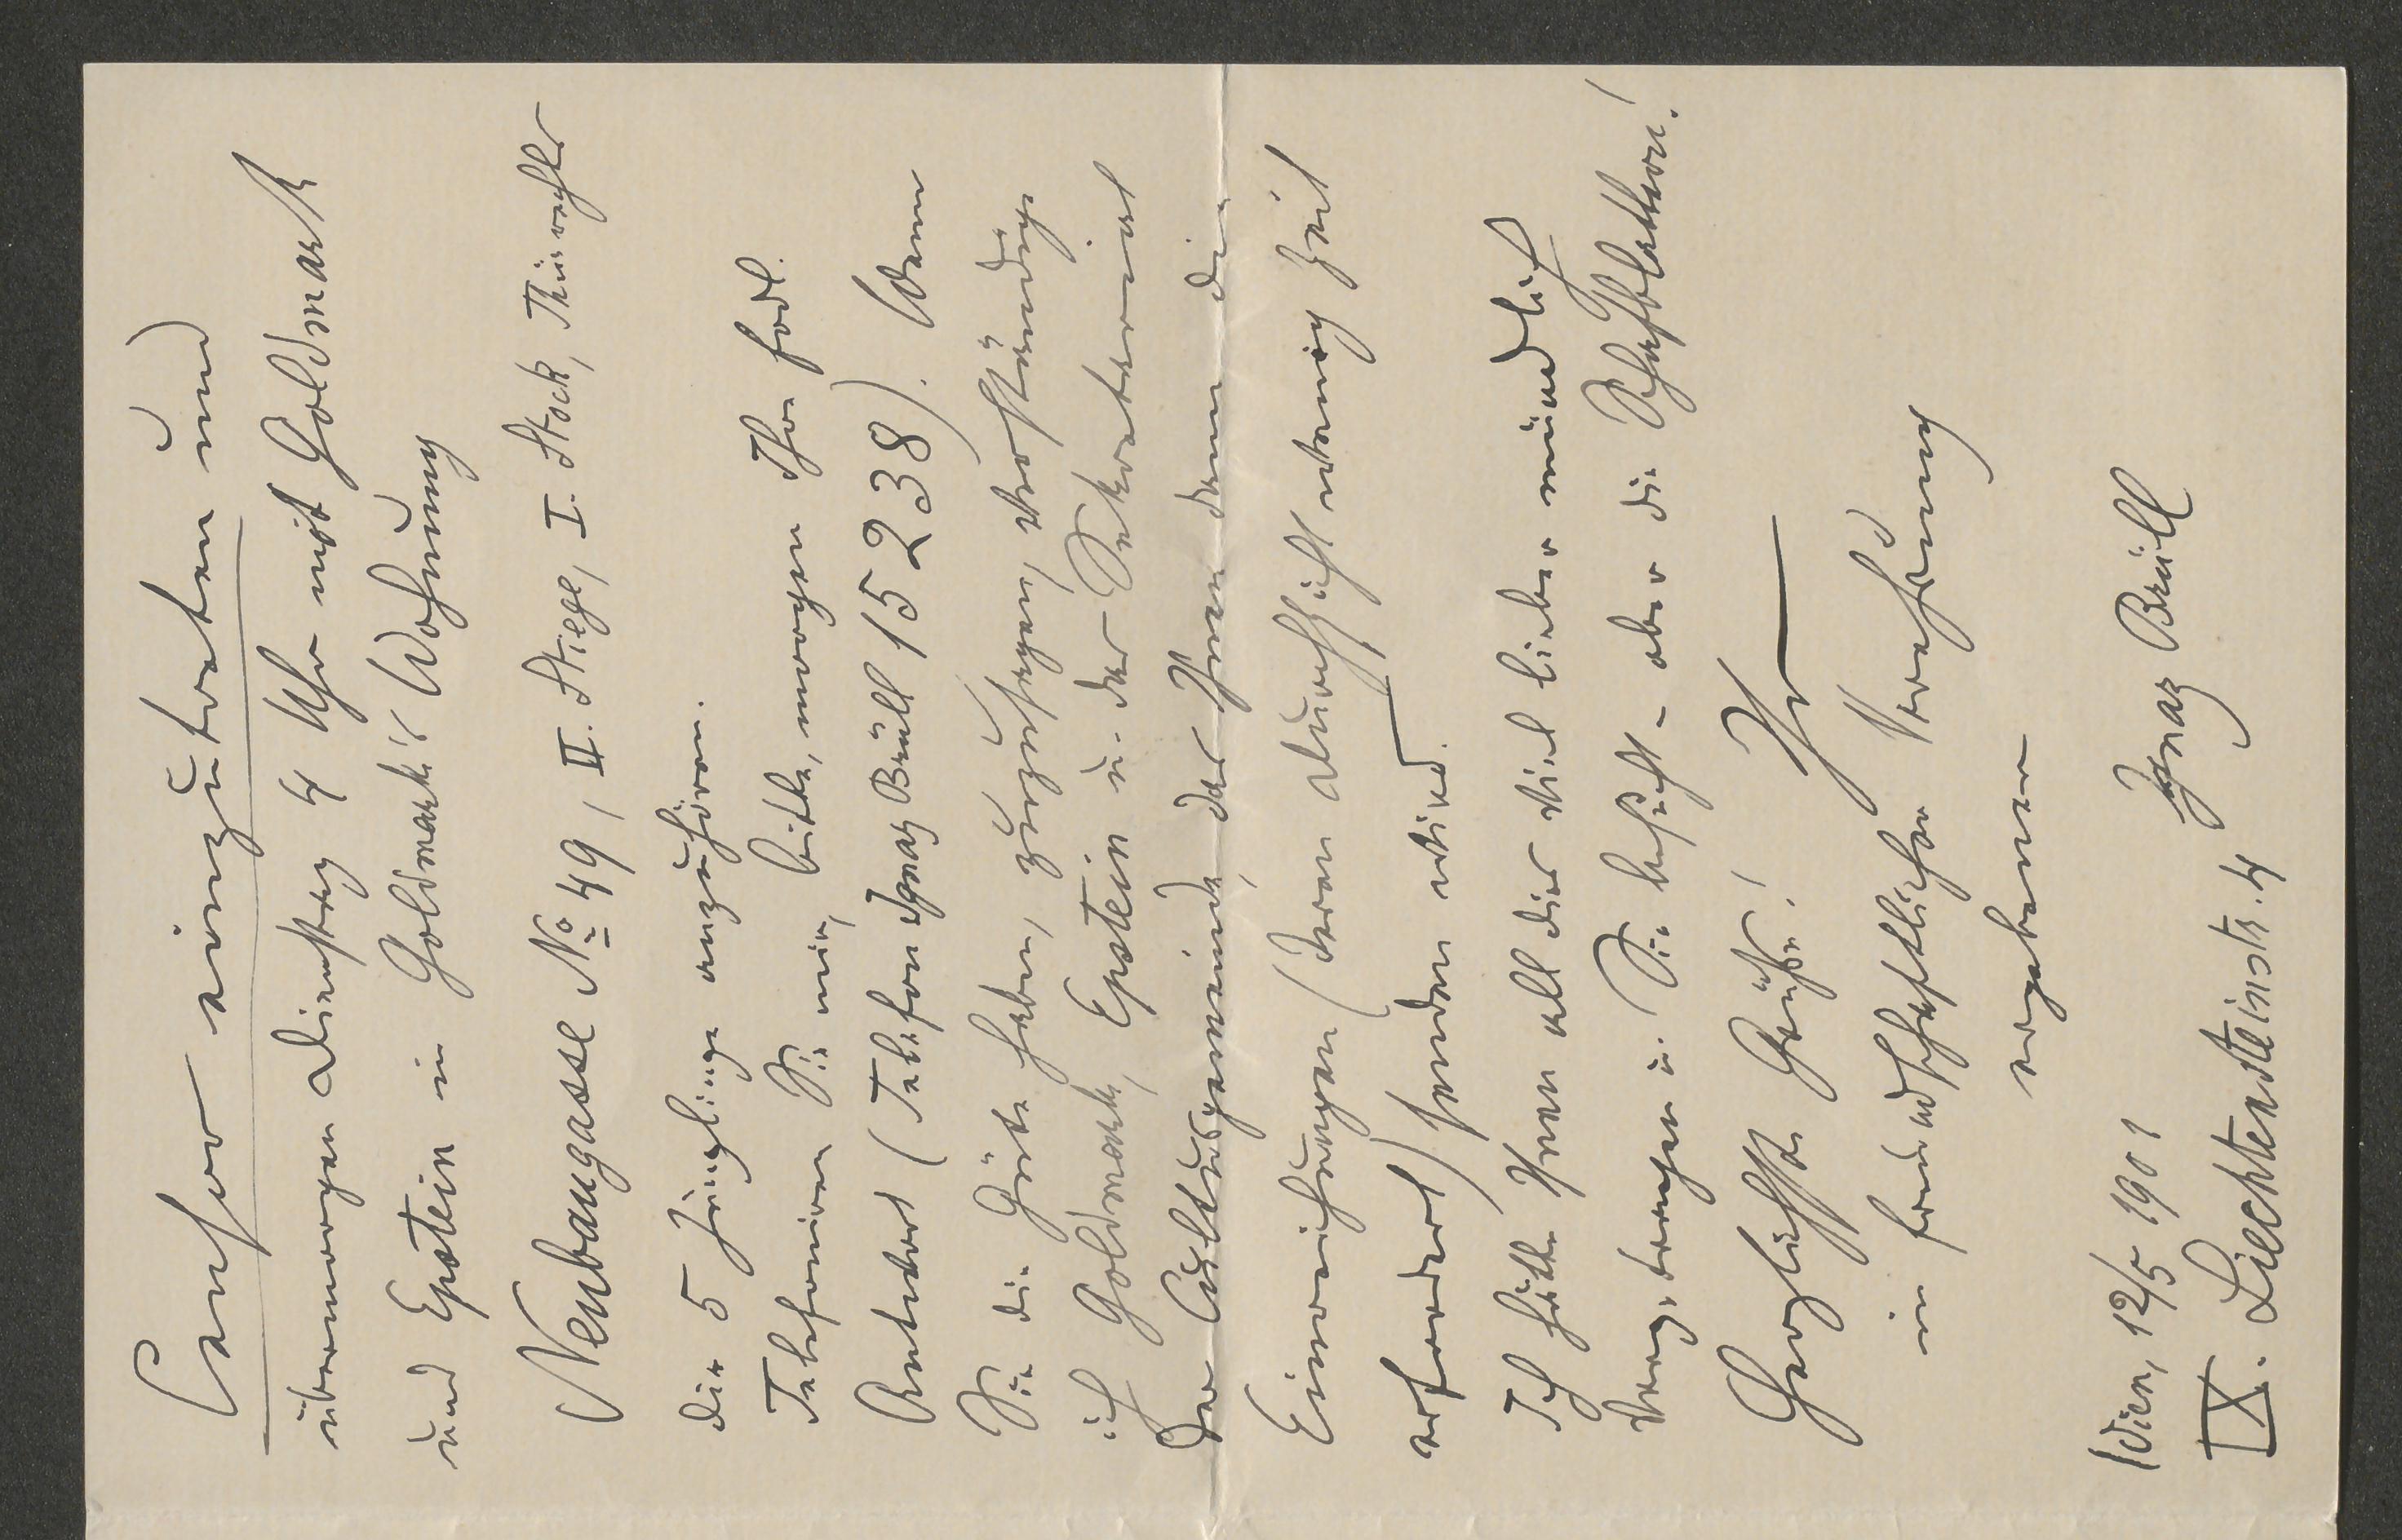 Censor einzutreten und
übermorgen Dienstag 4 Uhr mit Goldmark
und Epstein in Goldmark's Wohnung
Neubaugasse No 49, II. Stiege, I. Stock, Thür rechts
die 5 Jünglinge anzuhören.
Telefoniren Sie mir, bitte, morgen Ihre frdl.
Antwort (Telefon Ignaz Brüll 15238). Wenn
Sie die Güte haben, zuzusagen, verständige
ich Goldmark, Epstein u. das Sekretariat
der Cultusgemeinde, das Ihnen dann die
Einreichungen (deren Durchsicht wenig Zeit
erfordert) senden wird.
Ich hätte Ihnen all dies viel lieber mündlich
vorgetragen u. Sie besucht – aber die Schafblattern!
Herzlichste Grüße! Ihr
in freundschaftlicher Verehrung
ergebener
Wien, 12/5 1901 Ignaz Brüll
IX. Liechtensteinstr. 4